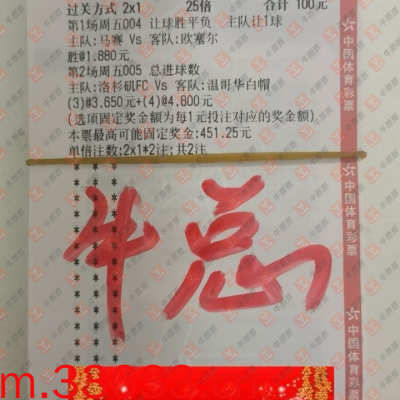 过关方式 2x1 25倍 合计 100元
第1场周五004 让球胜平负 主队让1球
主队:马赛 Vs 客队:欧塞尔
胜@1.880元
第2场周五005 总进球数
主队:洛杉矶FC Vs 客队:温哥华白帽
(3)@3.650元+(4)@4.800元
(选项固定奖金额为每1元投注对应的奖金额)
本票最高可能固定奖金:451.25元
单倍注数:2x1*2注;共2注
牛总
中国体育彩票
中国体育彩票
中国体育彩票
m.3